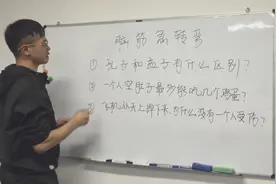 脑筋急转弯
① 孔子和孟子有什么区别?
② 一个人空肚子最多能吃几个鸡蛋?
③ 飞机从天上掉下来,为什么没有一个人受伤?